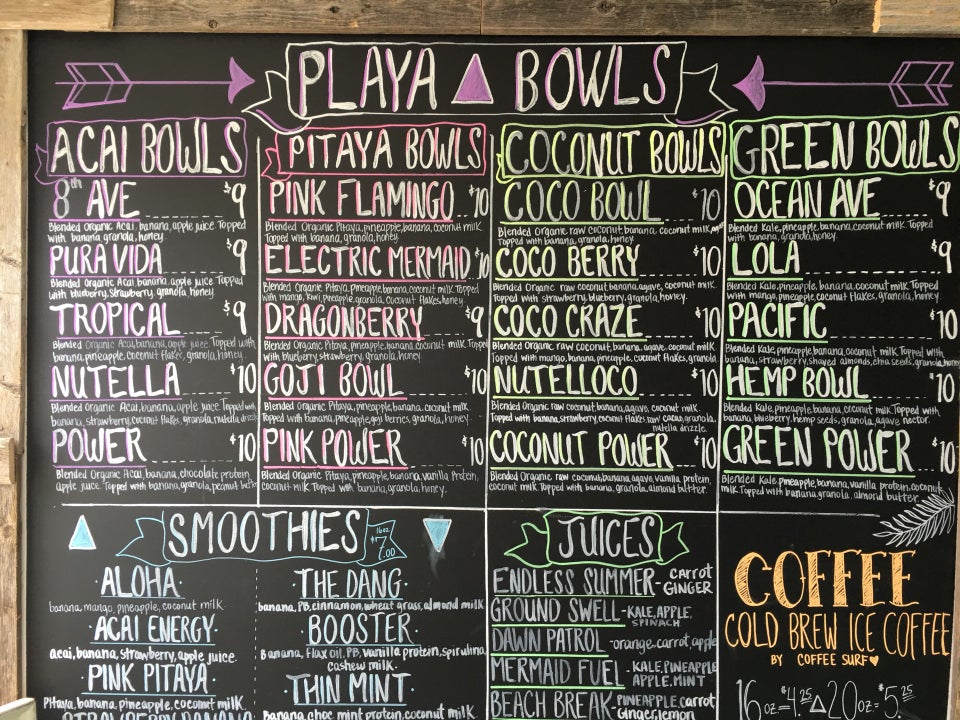 PLAYA BOWLS
ACAI BOWLS
8th AVE $9
Blended Organic Acai, banana, apple juice. Topped
with banana, granola, honey.
PURA VIDA $9
Blended Organic Acai banana, apple juice. Topped
with blueberry, strawberry, granola, honey.
TROPICAL $9
Blended Organic Acai, banana, apple juice. Topped with
banana, pineapple, coconut flakes, granola, honey.
NUTELLA $10
Blended Organic Acai, banana, apple juice. Topped with
banana, strawberry, coconut flakes, granola, nutella drizzle
POWER $10
Blended Organic Acai, banana, chocolate protein
apple juice. Topped with banana, granola, peanut butter
PITAYA BOWLS
PINK FLAMINGO $10
Blended Organic Pitaya, pineapple, banana, coconut milk.
Topped with banana, granola, honey.
ELECTRIC MERMAID $10
Blended Organic Pitaya, pineapple, banana, coconut milk. Topped
with mango, kiwi, pineapple, granola, coconut flakes, honey.
DRAGONBERRY $9
Blended Organic Pitaya, pineapple, banana, coconut milk. Topped
with blueberry, strawberry, granola, honey.
GOJI BOWL $10
Blended Organic Pitaya, pineapple, banana, coconut milk.
Topped with banana, pineapple, goji berries, granola, honey.
PINK POWER $10
Blended Organic Pitaya, pineapple, banana, vanilla protein,
coconut milk. Topped with banana, granola, honey.
COCONUT BOWLS
COCO BOWL $10
Blended Organic raw coconut, banana, coconut milk,
Topped with banana, granola, honey
COCO BERRY $10
Blended Organic raw coconut, banana, agave, coconut milk.
Topped with strawberry, blueberry, granola, honey.
COCO CRAZE $10
Blended Organic raw coconut, banana, agave, coconut milk.
Topped with mango, banana, pineapple, coconut flakes, granola,
NUTELLOCO $10
Blended Organic raw coconut, banana, agave, coconut milk
Topped with banana, strawberry, coconut flakes, raw cacao, granola,
nutella drizzle.
COCONUT POWER $10
Blended Organic raw coconut, banana, agave, vanilla protein,
coconut milk. Topped with banana, granola, almond butter.
GREEN BOWLS
OCEAN AVE $9
Blended Kale, pineapple, banana, coconut milk. Topped
with banana, granola, honey.
LOLA $9
Blended Kale, pineapple, banana, coconut milk. Topped
with mango, pineapple, coconut flakes, granola, honey.
PACIFIC $10
Blended Kale, pineapple, banana, coconut milk. Topped with
banana, strawberry, shaved almonds, chia seeds, granola, honey
HEMP BOWL $10
Blended Kale, pineapple, banana, coconut milk. Topped with
banana, blueberry, hemp seeds, granola, agave nectar.
GREEN POWER $10
Blended Kale, pineapple, banana, vanilla protein, coconut
milk. Topped with banana, granola, almond butter.
SMOOTHIES 16oz $7.00
ALOHA
banana, mango, pineapple, coconut milk.
ACAI ENERGY
acai, banana, strawberry, apple juice.
PINK PITAYA
Pitaya, banana, pineapple, coconut milk.
STRAWBERRY BANANA
THE DANG
banana, PB, cinnamon, wheat grass, almond milk
BOOSTER
Banana, Flax oil, PB, vanilla protein, spirulina,
cashew milk.
THIN MINT
Banana, choc mint protein, coconut milk.
JUICES
ENDLESS SUMMER - CARROT
GINGER
GROUND SWELL - KALE, APPLE,
SPINACH
DAWN PATROL - orange, carrot, apple
MERMAID FUEL - KALE, PINEAPPLE
APPLE, MINT
BEACH BREAK - PINEAPPLE, carrot
Ginger, lemon
COFFEE
COLD BREW ICE COFFEE
BY COFFEE SURF
16oz=$4.25 20oz=$5.25